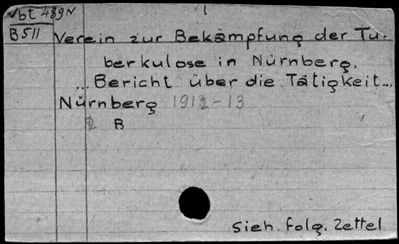 Vbt 489N
B 511
Verein zur Bekämpfung der Tu-
berkulose in Nürnberg.
...Bericht über die Tätigkeit...
Nürnberg 1912-13
B
Sieh. folg. Zettel